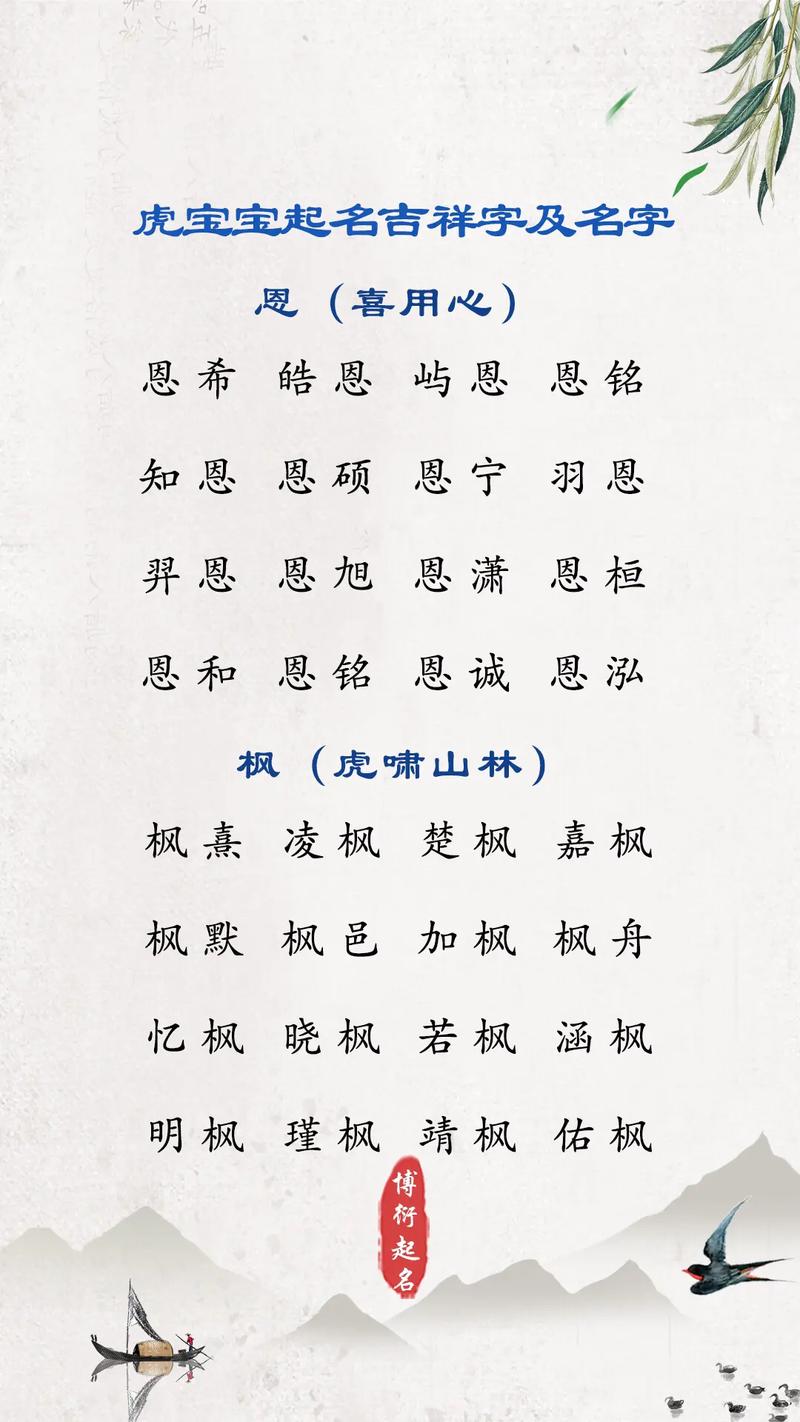 虎宝宝起名吉祥字及名字
恩（喜用心）
恩希 皓恩 屿恩 恩铭
知恩 恩硕 恩宁 羽恩
羿恩 恩旭 恩潇 恩桓
恩和 恩铭 恩诚 恩泓
枫（虎啸山林）
枫熹 凌枫 楚枫 嘉枫
枫默 枫邑 加枫 枫舟
忆枫 晓枫 若枫 涵枫
明枫 瑾枫 靖枫 佑枫
博衍起名